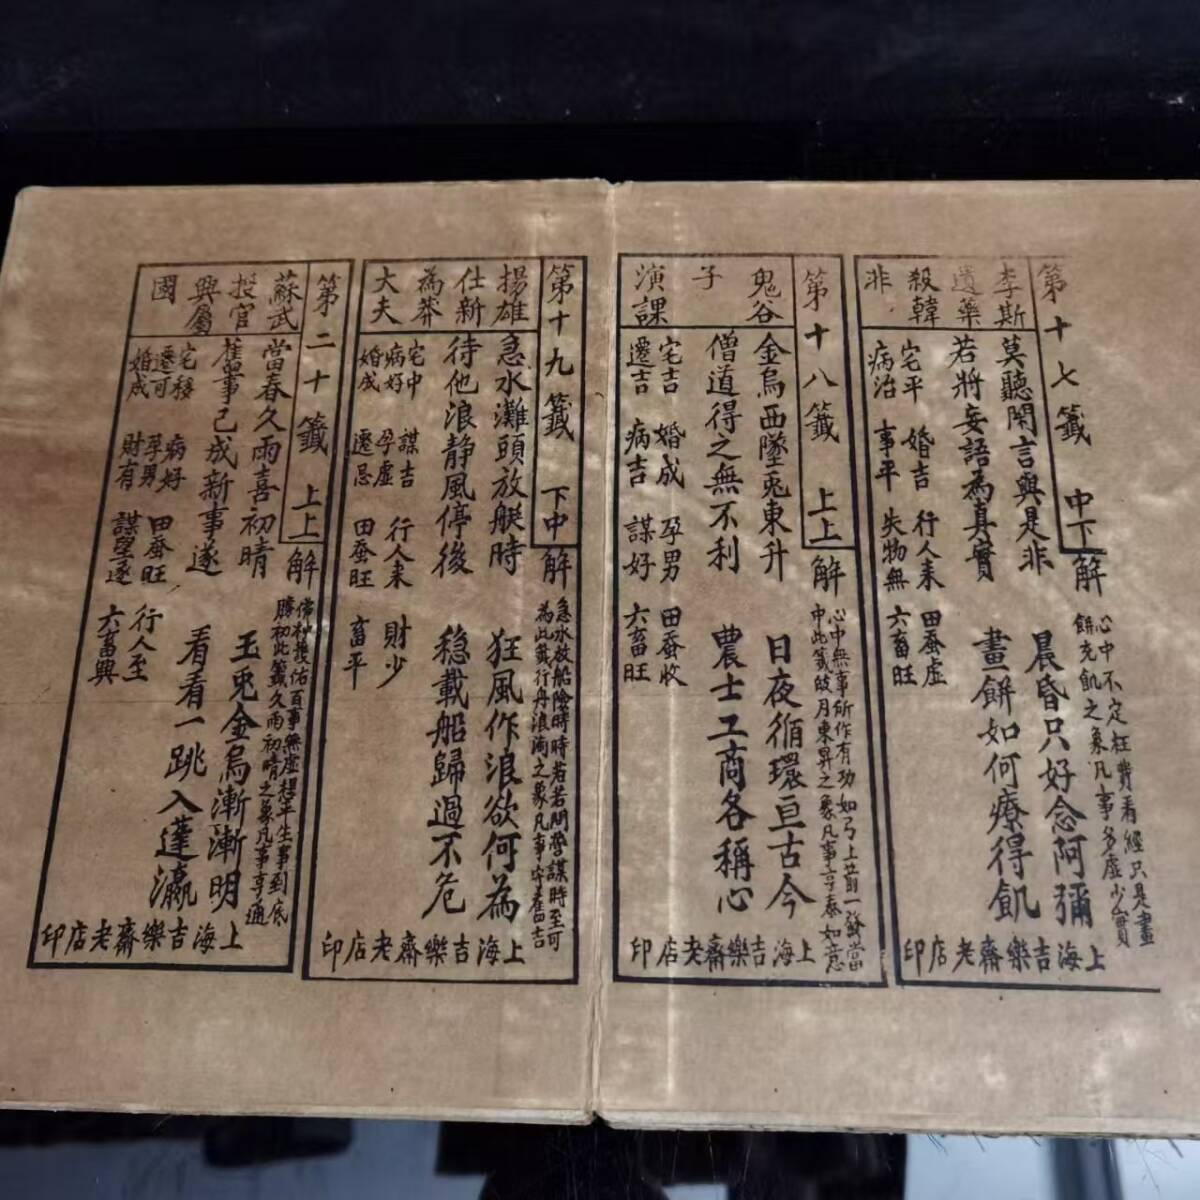 第十七籤 中下
李斯
遺藥
殺韓
非
莫聽閑言與是非 晨昏只好念阿彌
若將妄語為真實 畫餅如何療得飢
宅平 婚吉 行人未 田蚕虛
病治 事平 失物無 六畜旺
解
心中不定枉費看經只是畫
餅充飢之象凡事多虛少實
上海吉樂齋老店印
第十八籤 上上
鬼谷
子
演課
金烏西墜兎東升 日夜循環亘古今
僧道得之無不利 農士工商各稱心
宅吉 婚成 孕男 田蚕收
遷吉 病吉 謀好 六畜旺
解
心中無事所作有功如弓上箭一發當
中此籤皎月東昇之象凡事亨泰如意
上海吉樂齋老店印
第十九籤 下中
揚雄
仕新
為莽
大夫
急水灘頭放艇時 狂風作浪欲何為
待他浪静風停後 稳載船歸過不危
宅中 謀吉 行人未 財少
病好 孕虛 田蚕旺 畜平
婚成 遷忌
解
急水放船險時時若若問營謀時至可
為此籤行舟浪滴之象凡事守舊吉
上海吉樂齋老店印
第二十籤 上上
蘇武
授官
興屬
國
當春久雨喜初晴 玉兎金烏漸漸明
舊事已成新事遂 看看一跳入蓬瀛
宅移 病好 田蚕旺 行人至
遷可 孕男 謀望遂 六畜興
婚成 財有
解
佛神護佑百事無虛想平生事到底
勝初此籤久雨初晴之象凡事亨通
上海吉樂齋老店印